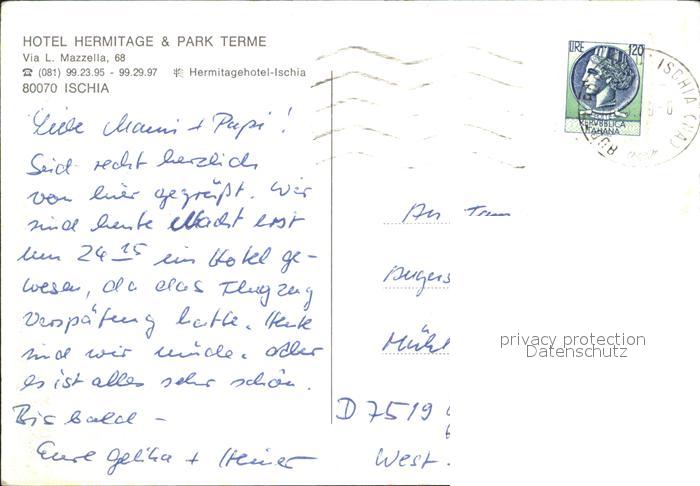 HOTEL HERMITAGE & PARK TERME
Via L. Mazzella, 68
☎ (081) 99.23.95 - 99.29.97 Hermitagehotel-Ischia
80070 ISCHIA
LIRE 120
REPUBBLICA
ITALIANA
ISCHIA (NA)
Liebe Mami + Papi!
Seid recht herzlich
von hier gegrüßt. Wir
sind heute Nacht erst
um 24 15 im Hotel ge-
wesen, da das Flugzeug
Verspätung hatte. Heute
sind wir müde. Aber
es ist alles sehr schön.
Bis bald -
Eure + Heiner
An
Augus
Mühl
D 7519
West.
privacy protection
Datenschutz